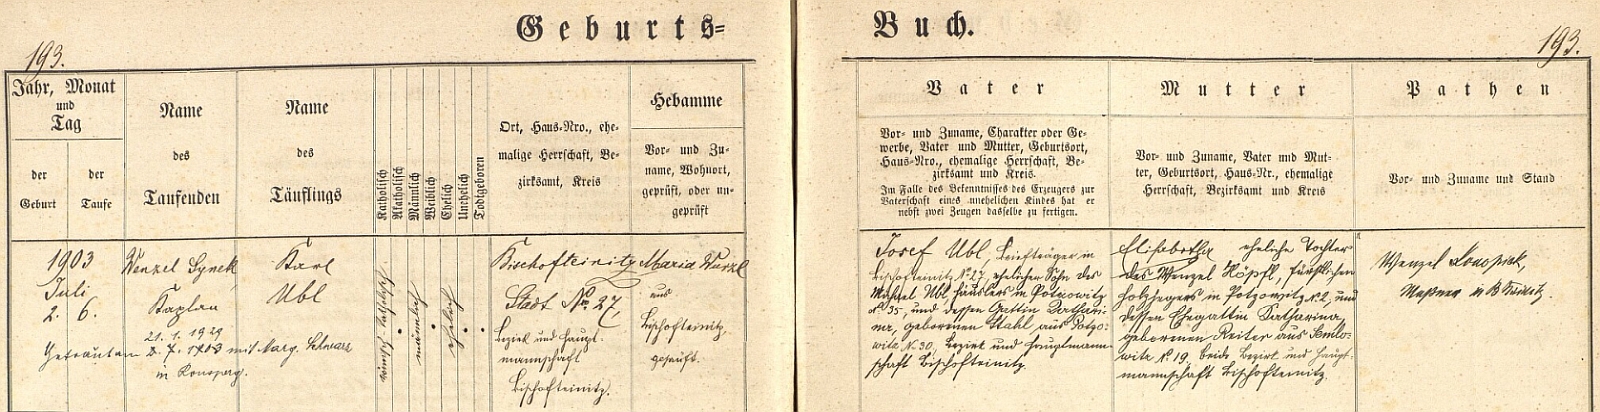 Geburts=
Buch.
193.
193.
Jahr, Monat
und
Tag
der
Geburt
der
Taufe
Name
des
Taufenden
Name
des
Täuflings
Katholisch
Akatholisch
Männlich
Weiblich
Ehelich
Unehelich
Todtgeboren
Ort, Haus-Nro., ehe-
malige Herrschaft, Be-
zirksamt, Kreis
Hebamme
Vor- und Zu-
name, Wohnort,
geprüft, oder un-
geprüft
Vater
Vor- und Zuname, Charakter oder Ge-
werbe, Vater und Mutter, Geburtsort,
Haus-Nro., ehemalige Herrschaft, Be-
zirksamt und Kreis.
Im Falle des Bekenntnisses des Erzeugers zur
Vaterschaft eines unehelichen Kindes hat er
nebst zwei Zeugen dasselbe zu fertigen.
Mutter
Vor- und Zuname, Vater und Mut-
ter, Geburtsort, Haus-Nr., ehemalige
Herrschaft, Bezirksamt und Kreis
Pathen
Vor- und Zuname und Stand
1903
Juli
2. 6.
Wenzel Synek
Kaplan
Karl
Ubl
21. 1. 1929
Getrauten mit Marg. Schwarz
in Ronsperg.
römisch katholisch
männlich
ehelich
Bischofteinitz
Stadt No 27,
Bezirk und Haupt-
mannschaft
Bischofteinitz.
Maria Wurzl
aus
Bischofteinitz.
geprüft.
Josef Ubl, Briefträger in
Bischofteinitz No 27, ehelicher Sohn des
Michael Ubl, Häuslers in Potzowitz
No 35, und dessen Gattin Kathari-
na, gebornen Stahl aus Potzo-
witz No 30, Bezirk und Hauptmann-
schaft Bischofteinitz.
Elisabetha eheliche Tochter
des Wenzel Höpfl, fürstlichen
Holzhegers in Potzowitz No 2, und
dessen Ehegattin Katharina,
gebornen Reiter aus Semlo-
witz No 19, beide Bezirk und Haupt-
mannschaft Bischofteinitz.
Wenzel Konopisk,
Meßner in B Teinitz.